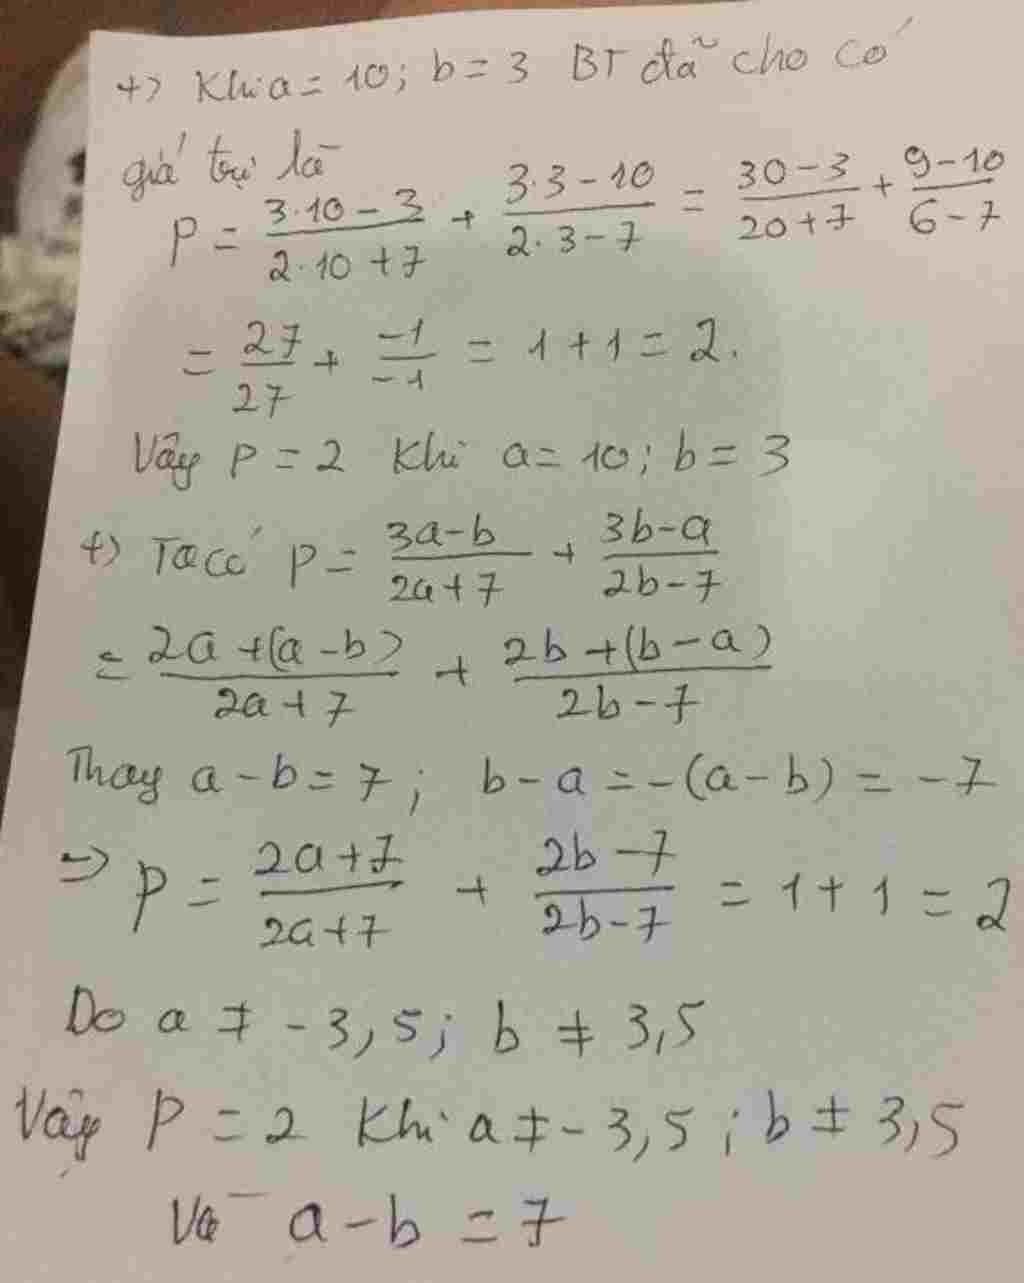 +) Khi a = 10; b = 3 BT đã cho có
giá trị là
P = \frac{3·10-3}{2·10+7} + \frac{3·3-10}{2·3-7} = \frac{30-3}{20+7} + \frac{9-10}{6-7}
= \frac{27}{27} + \frac{-1}{-1} = 1+1 = 2.
Vậy P = 2 khi a = 10; b = 3
+) Ta có P = \frac{3a-b}{2a+7} + \frac{3b-a}{2b-7}
= \frac{2a+(a-b)}{2a+7} + \frac{2b+(b-a)}{2b-7}
Thay a-b = 7; b-a = -(a-b) = -7
=> P = \frac{2a+7}{2a+7} + \frac{2b-7}{2b-7} = 1+1 = 2
Do a ≠ -3,5; b ≠ 3,5
Vậy P = 2 khi a ≠ -3,5; b ≠ 3,5
Và a-b = 7